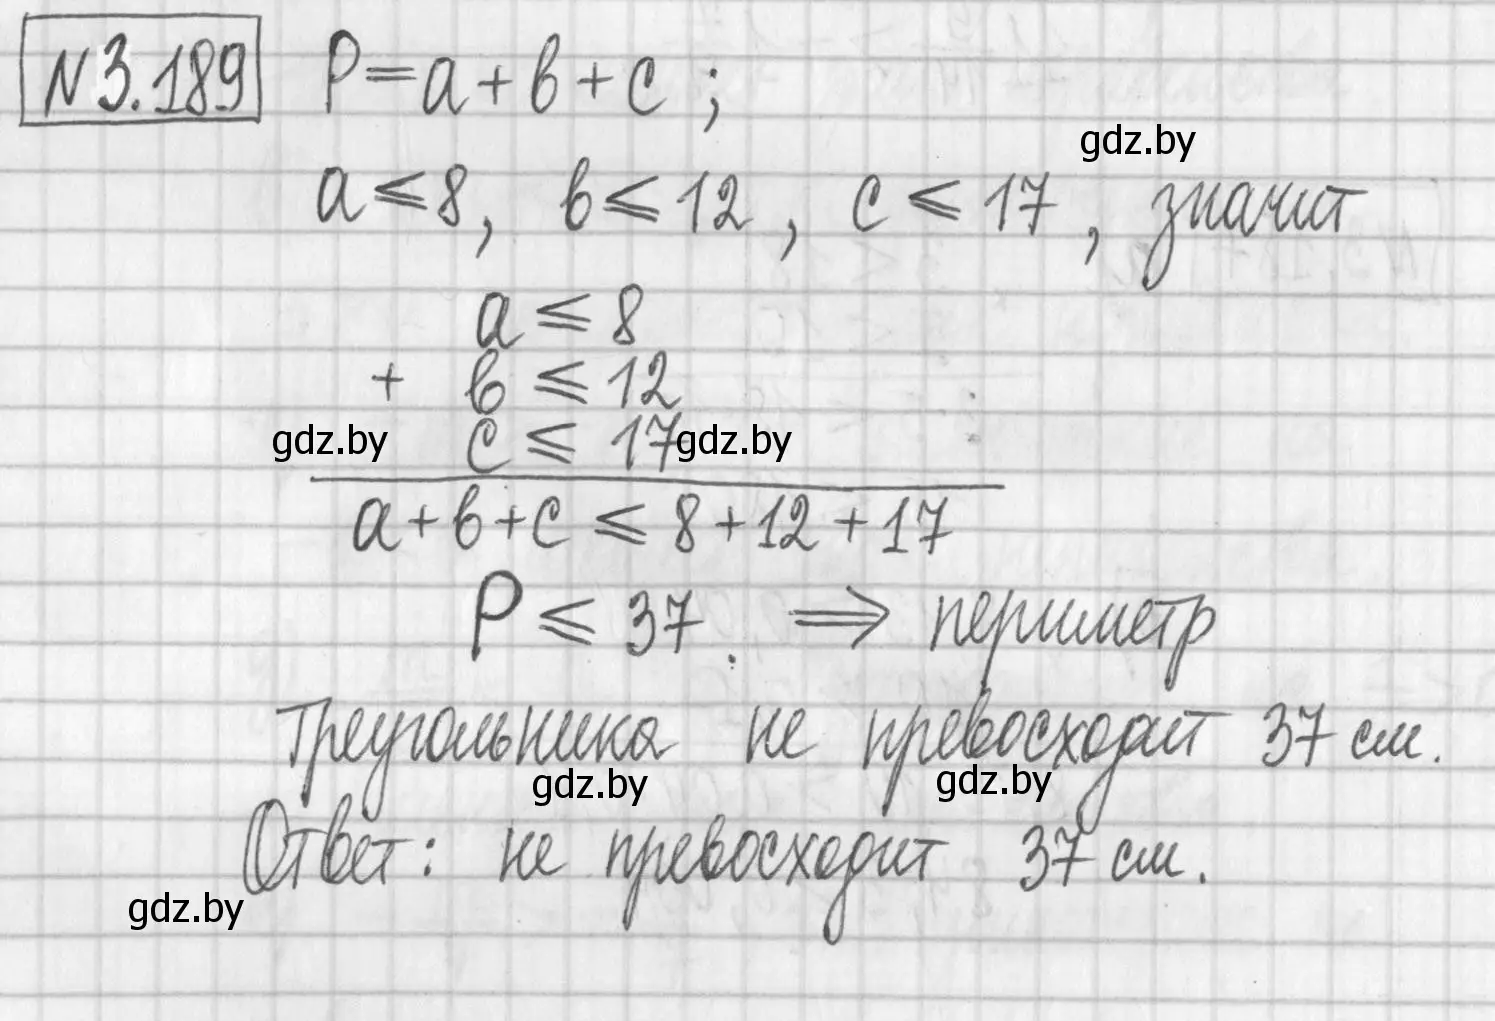 N3.189 P=a+в+c ;
gdz.by
a≤8, в≤12, c≤17, значит
a≤8
+ в≤12
gdz.by c≤17 gdz.by
a+в+c≤8+12+17
P≤37. ⇒ периметр
треугольника не превосходит 37 см.
gdz.by gdz.by
Ответ: не превосходит 37 см.
gdz.by